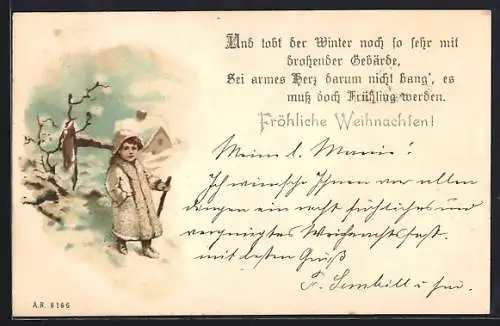 Und tobt der Winter noch so sehr mit
drohender Gebärde,
Sei armes Herz darum nicht bang', es
muß doch Frühling werden.
Fröhliche Weihnachten!
Meine l. Marie!
Ich wünsche Ihnen vor allen
dingen ein recht fröhliches und
vergnügtes Weihnachtsfest.
mit besten Gruß
F. u
A.R. 6166